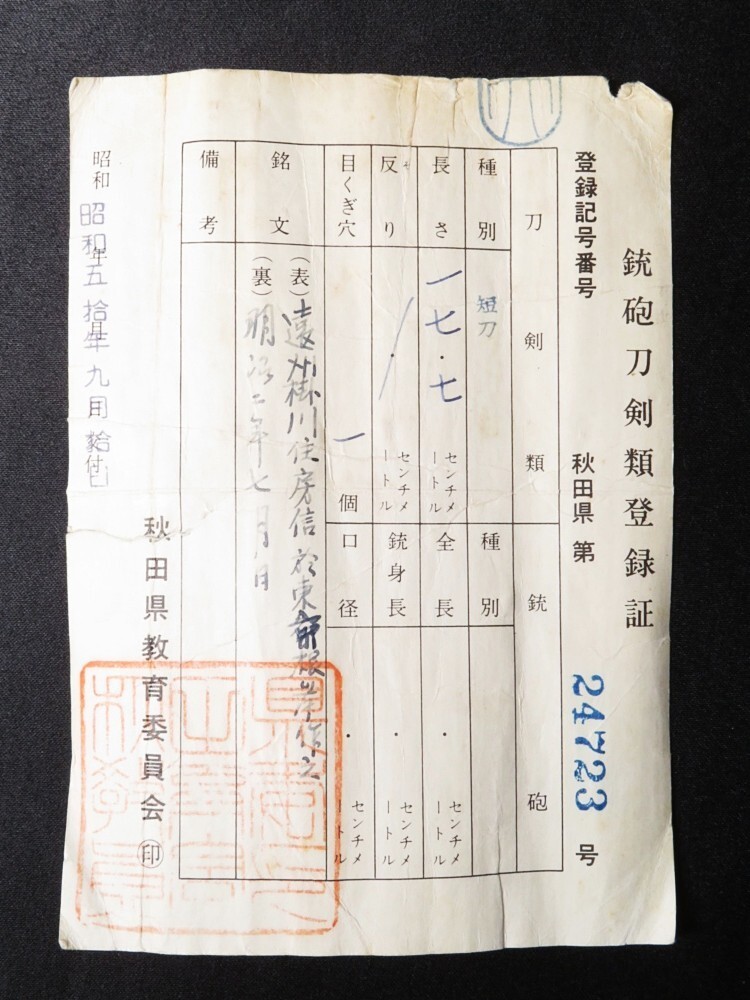 銃砲刀剣類登録証
登録記号番号 秋田県 第 24723 号
刀剣類 銃砲
種別 短刀 種別
長さ 一七・七 センチメートル 全長 ・ センチメートル
反り ・ センチメートル 銃身長 ・ センチメートル
目くぎ穴 一 個 口径 ・ センチメートル
銘文 (表) 遠州掛川住房信於東都根岸作之
(裏) 明治二年七月日
備考
昭和 年 月 日
昭和五拾年九月
秋田県教育委員会 ㊞